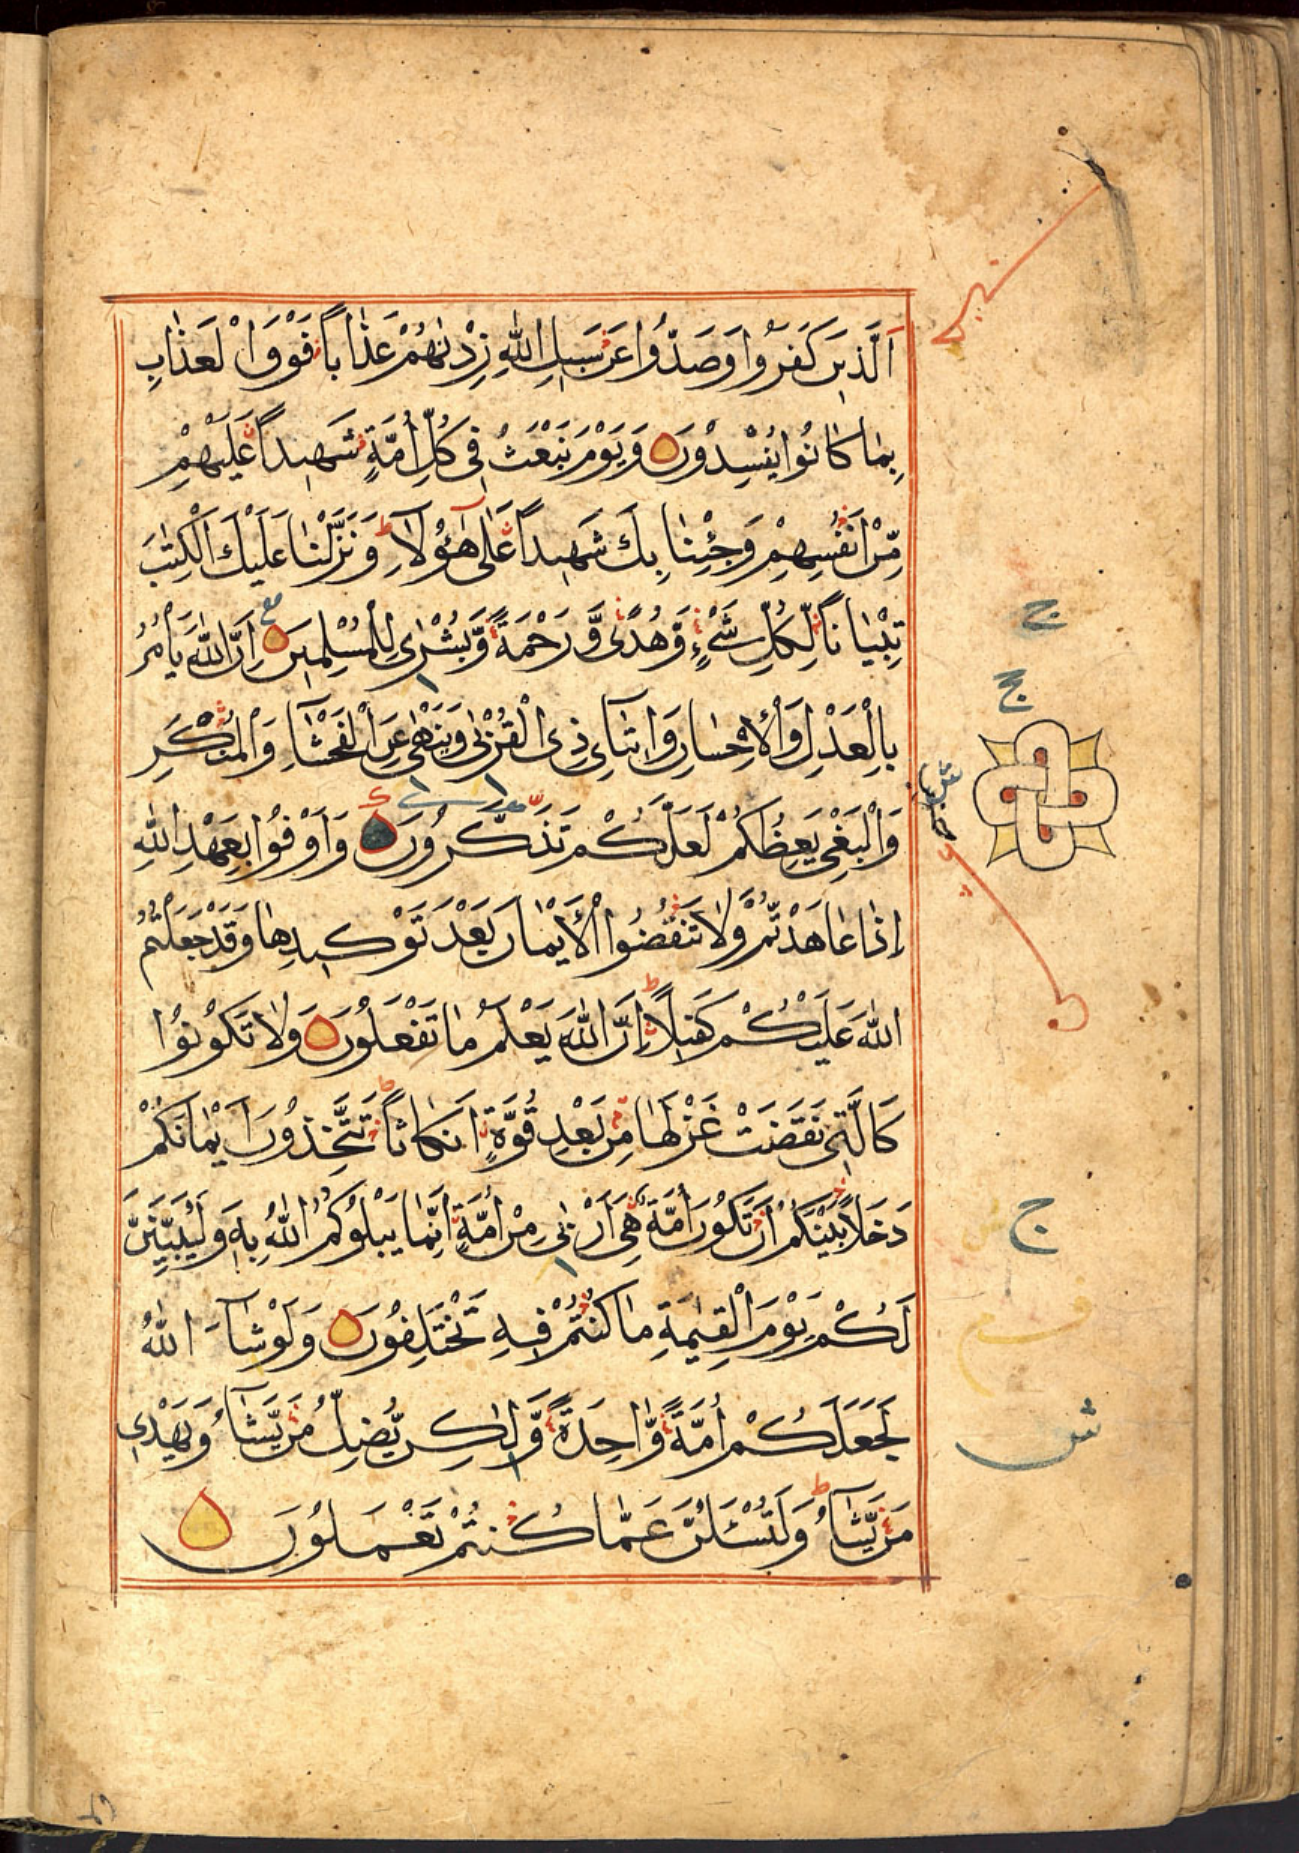 اَلَّذِينَ كَفَرُوا وَصَدُّوا عَنْ سَبِيلِ اللّٰهِ زِدْنٰهُمْ عَذَاباً فَوْقَ الْعَذَابِ
بِمَا كَانُوا يُفْسِدُونَ وَيَوْمَ نَبْعَثُ فِي كُلِّ اُمَّةٍ شَهِيداً عَلَيْهِمْ
مِّنْ اَنْفُسِهِمْ وَجِئْنَا بِكَ شَهِيداً عَلٰى هٰٓؤُلَآءِ وَنَزَّلْنَا عَلَيْكَ الْكِتٰبَ
تِبْيَاناً لِّكُلِّ شَيْءٍ وَّهُدًى وَّرَحْمَةً وَّبُشْرٰى لِلْمُسْلِمِينَ اِنَّ اللّٰهَ يَاْمُرُ
بِالْعَدْلِ وَالْاِحْسَانِ وَاِيتَآئِ ذِي الْقُرْبٰى وَيَنْهٰى عَنِ الْفَحْشَآءِ وَالْمُنْكَرِ
وَالْبَغْيِ يَعِظُكُمْ لَعَلَّكُمْ تَذَكَّرُونَ وَاَوْفُوا بِعَهْدِ اللّٰهِ
اِذَا عَاهَدْتُّمْ وَلَا تَنْقُضُوا الْاَيْمَانَ بَعْدَ تَوْكِيدِهَا وَقَدْ جَعَلْتُمُ
اللّٰهَ عَلَيْكُمْ كَفِيلاً اِنَّ اللّٰهَ يَعْلَمُ مَا تَفْعَلُونَ وَلَا تَكُونُوا
كَالَّتِي نَقَضَتْ غَزْلَهَا مِنْ بَعْدِ قُوَّةٍ اَنْكَاثاً تَتَّخِذُونَ اَيْمَانَكُمْ
دَخَلاً بَيْنَكُمْ اَنْ تَكُونَ اُمَّةٌ هِيَ اَرْبٰى مِنْ اُمَّةٍ اِنَّمَا يَبْلُوكُمُ اللّٰهُ بِهِ وَلَيُبَيِّنَنَّ
لَكُمْ يَوْمَ الْقِيٰمَةِ مَا كُنْتُمْ فِيهِ تَخْتَلِفُونَ وَلَوْ شَآءَ اللّٰهُ
لَجَعَلَكُمْ اُمَّةً وَّاحِدَةً وَّلٰكِنْ يُّضِلُّ مَنْ يَّشَآءُ وَيَهْدِي
مَنْ يَّشَآءُ وَلَتُسْئَلُنَّ عَمَّا كُنْتُمْ تَعْمَلُونَ
ج
ج
ج